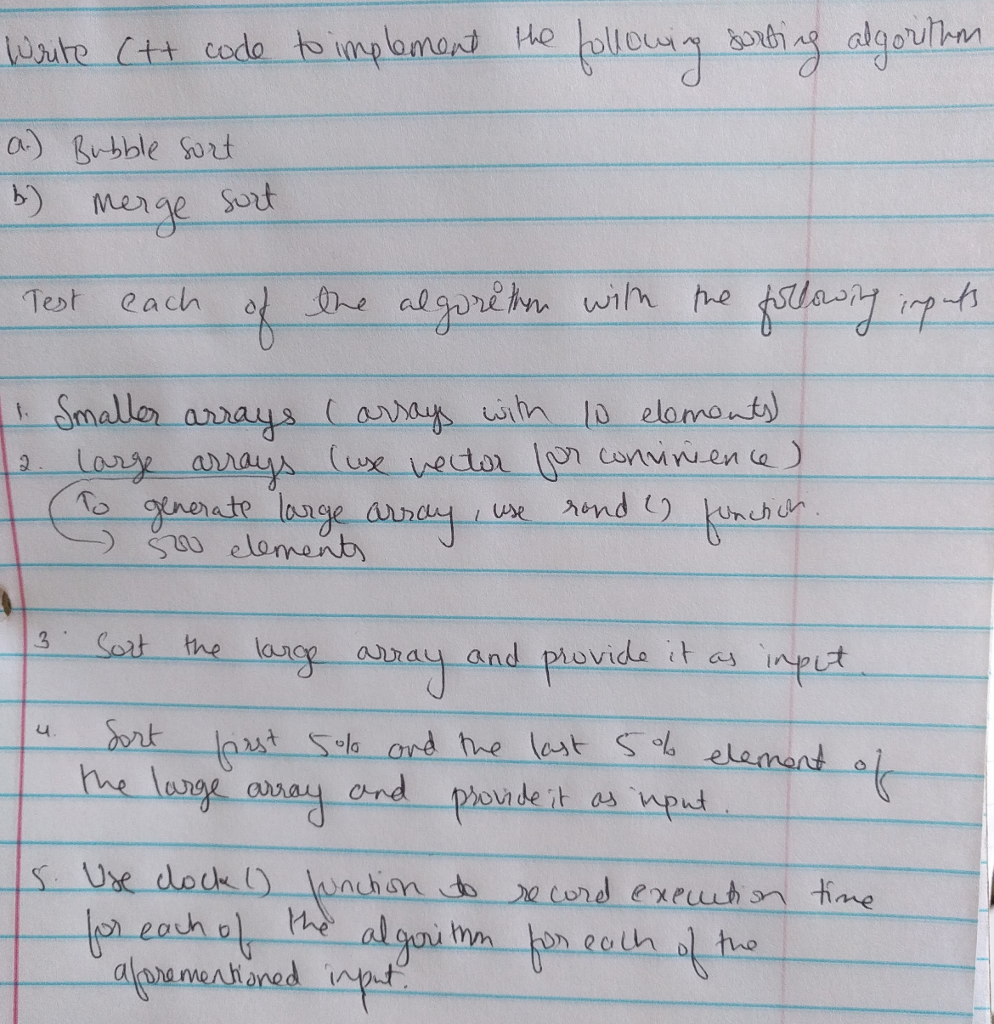 Write C++ code to implement the following sorting algorithm
a.) Bubble Sort
b) Merge Sort
Test each of the algorithm with the following inputs
1. Smaller arrays ( arrays with 10 elements)
2. Large arrays (use vector for convinience)
To generate large array, use rand () function.
5000 elements
3. Sort the large array and provide it as input.
4. Sort first 5% and the last 5% element of
the large array and provide it as input.
5. Use clock() function to record execution time
for each of the algorithm for each of the
aforementioned input.